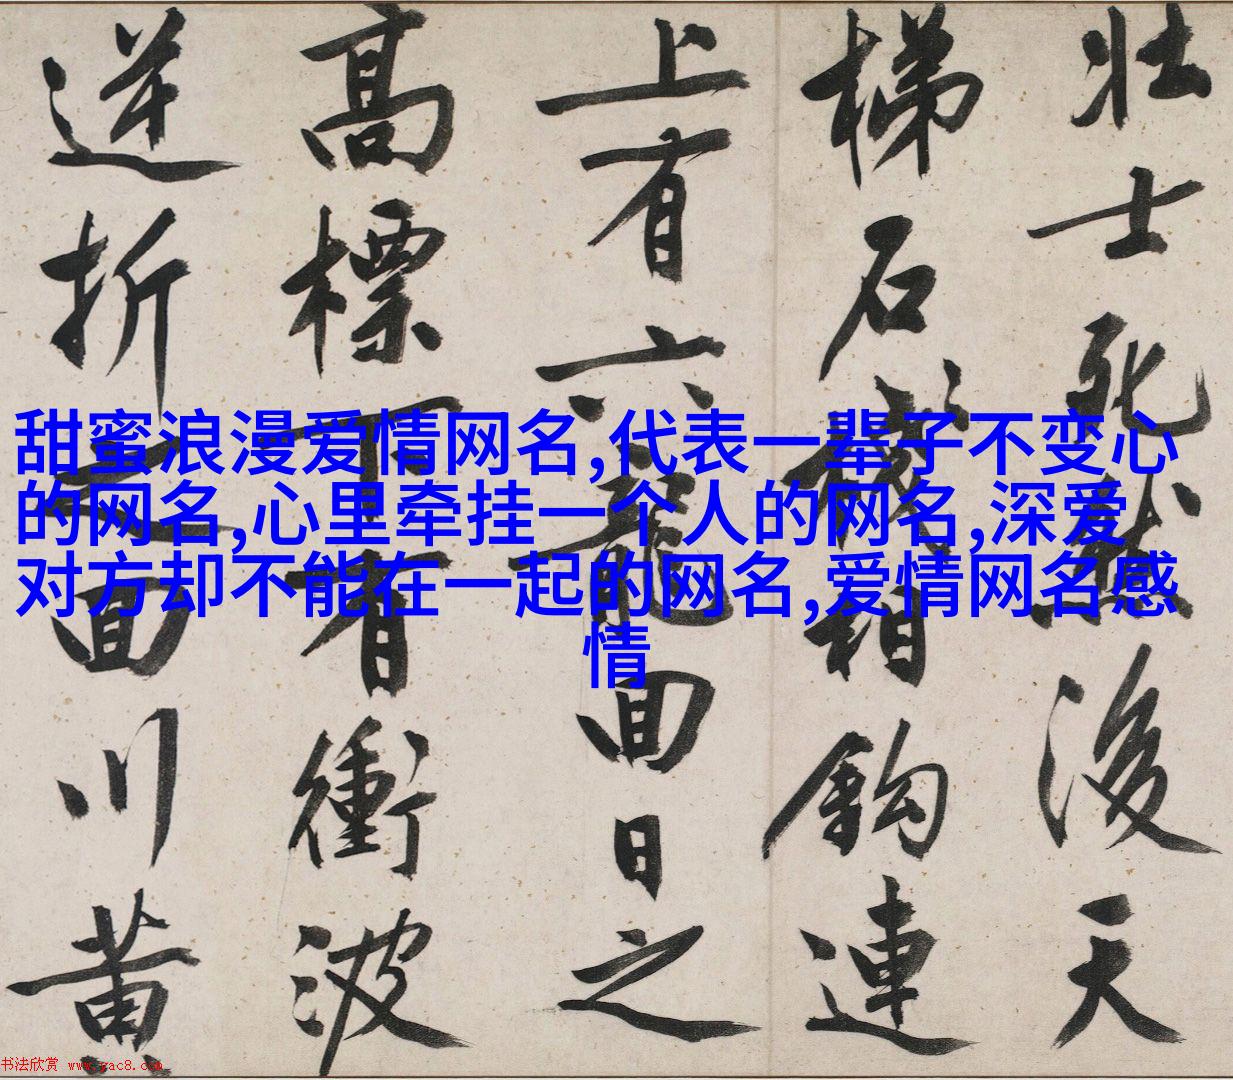 壯士死然後天
梯石棧相鈎連
上有六龍迴日之
高標下有衝波
逆折之迴川黄
甜蜜浪漫爱情网名,代表一辈子不变心
的网名,心里牵挂一个人的网名,深爱
对方却不能在一起的网名,爱情网名感
情
书法欣赏 www.yac8.com